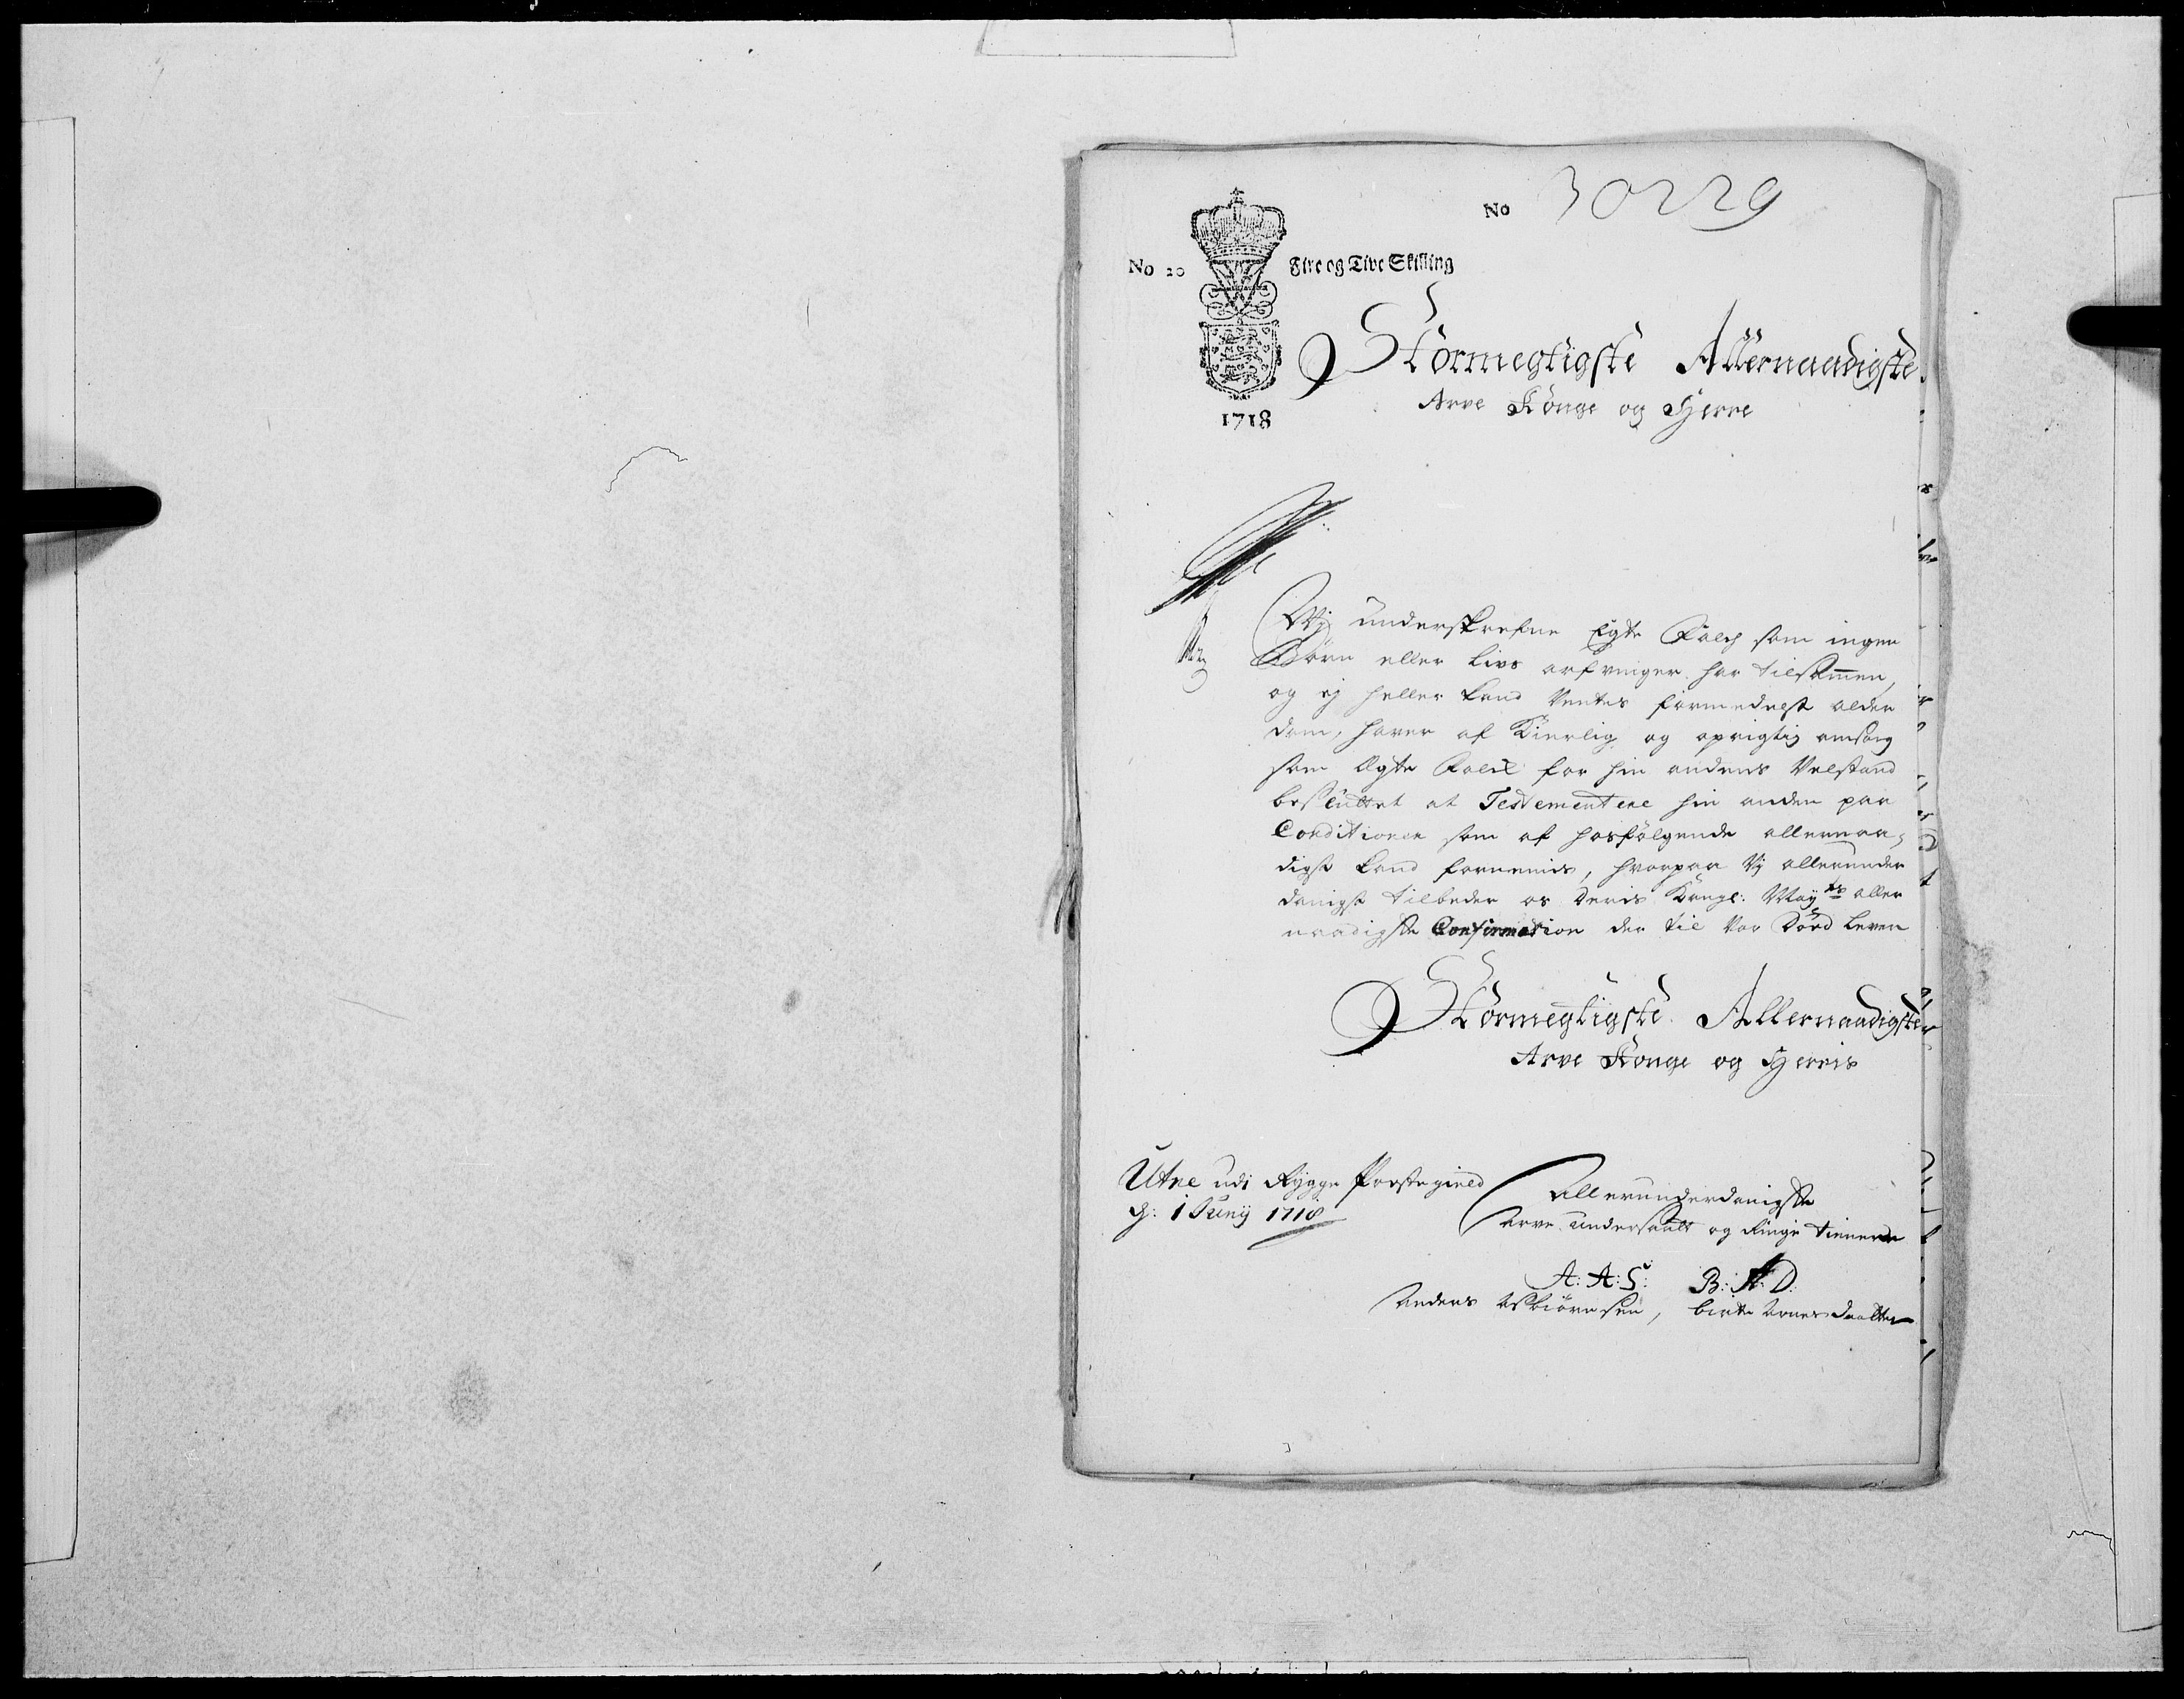 No 30229
No 20 Fire og Tive Skilling
1718
Stormegtigste Allernaadigste
Arve Konge og Herre
Wj underskrefne Egte Folch som ingen
Börn eller livs arfvinger har tilsam̄en,
og ej heller kand Ventes formedelst alder
dom, haver af Kierlig og oprigtig omsorg
som Ægte Folck for hin andens Velstand
besluttet at Testementere hin anden paa
Conditioner som af hosfölgende allernaa¬
digst kand fornemis, hvorpaa Vj allerunder
danigst tilbeder os deris Kongl: Mayts aller
naadigste Confirmation der til Vor Död leven
Stormegtigste Allernaadigste
Arve Konge og Herris
Utne udi Rygge Præstegield
d: 1 Junij 1718
Allerunderdanigste
Arve undersaatt og Ringe tienere
A: A: S: B: A: D:
Anders Asbiörnsen, birte Arnes daatter